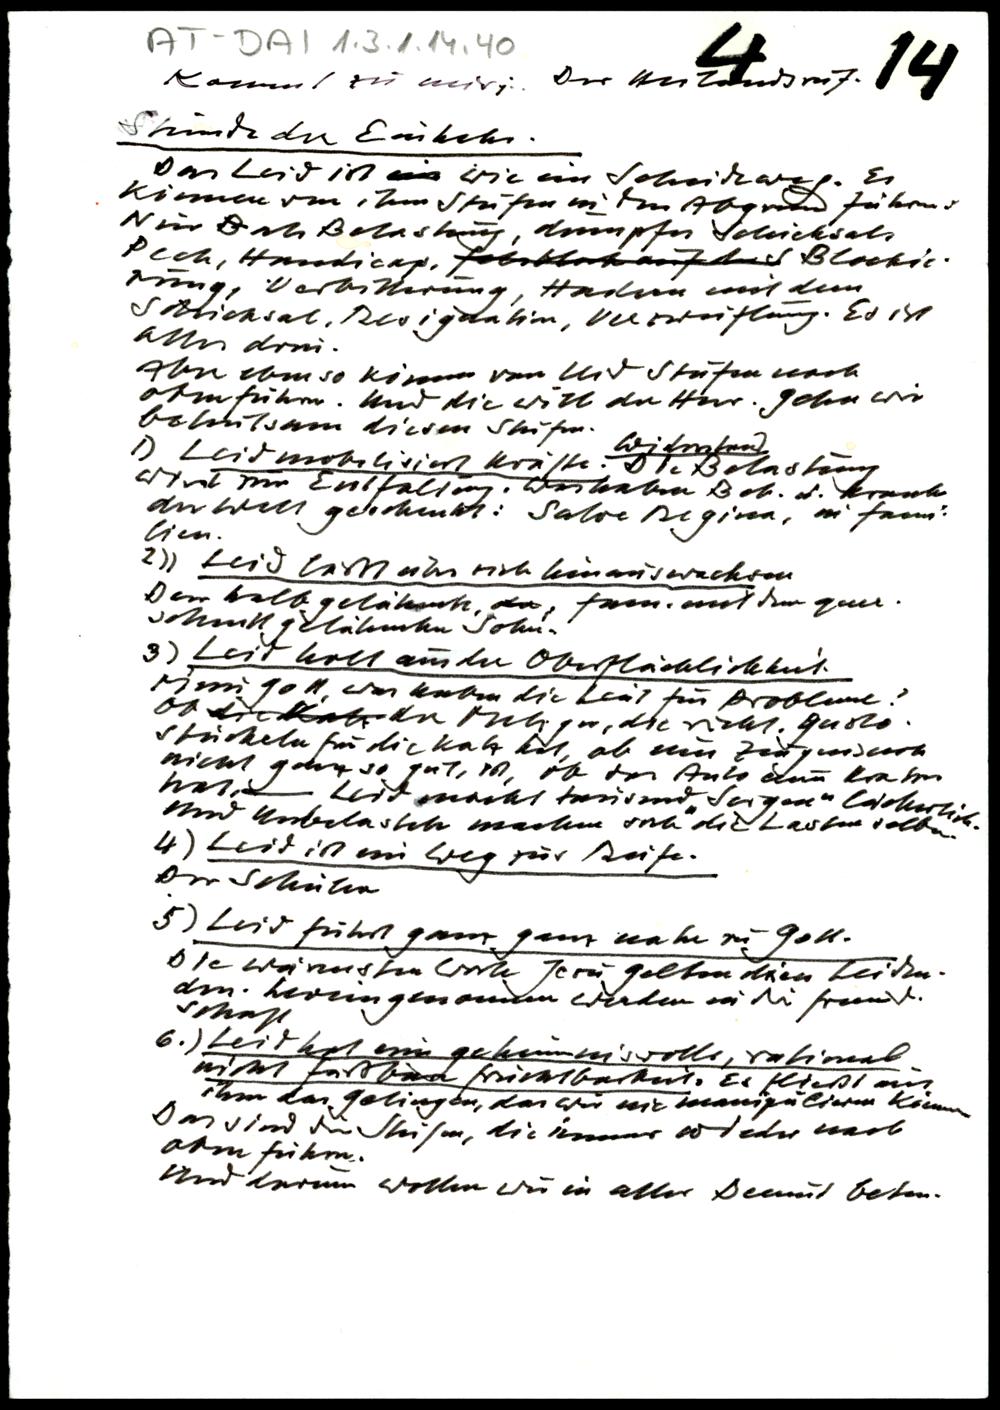 AT-DAI 1.3.1.14.40
4 14
Kommt zu mir; Der Heilandsruf.
Stunde der Einkehr.
Das Leid ist ein wie ein Scheideweg. Es
können von ihm Stufen in den Abgrund führen
Nur als Belastung, dumpfes Schicksal
Pech, Handicap, Blockie-
rung, Verbitterung, Hadern mit dem
Schicksal, Resignation, Verzweiflung. Es ist
alles drin.
Aber ebenso können von Leid Stufen nach
oben führen. Und die will der Herr. Gehen wir
behutsam diesen Stufen.
1) Leid mobilisiert Kräfte. Widerstand Die Belastung
wird zur Entfaltung. Was haben Beh. u. Kranke
der Welt geschenkt: Salve Regina, in Fami-
lien.
2)) Leid lässt über sich hinauswachsen
Der halb gelähmte, Fam. mit dem quer-
schnittgelähmten Sohn.
3) Leid holt aus der Oberflächlichkeit
mein Gott, was haben die Leut für Probleme?
Ob die Katz der die richt. Gusto-
stückeln für die Katz hat, ob mein Zeugnis noch
nicht ganz so gut, ist, ob das Auto einen Kratzer
hat, Leid macht tausend "Sorgen" lächerlich.
Und Unbelastete machen sich die Lasten selber
4) Leid ist ein Weg zur Reife.
Der Schüler
5) Leid führt ganz ganz nahe zu Gott.
Die wärmsten Worte Jesu gelten den Leiden-
den. Hereingenommen werden in die Freund-
schaft
6.) Leid hat eine geheimnisvolle, rational
nicht fassbare Fruchtbarkeit. Es fließt aus
ihm das Gelingen, das wir nie manipulieren können
Das sind die Stufen, die immer wieder nach
oben führen.
Und darum wollen wir in aller Demut beten.